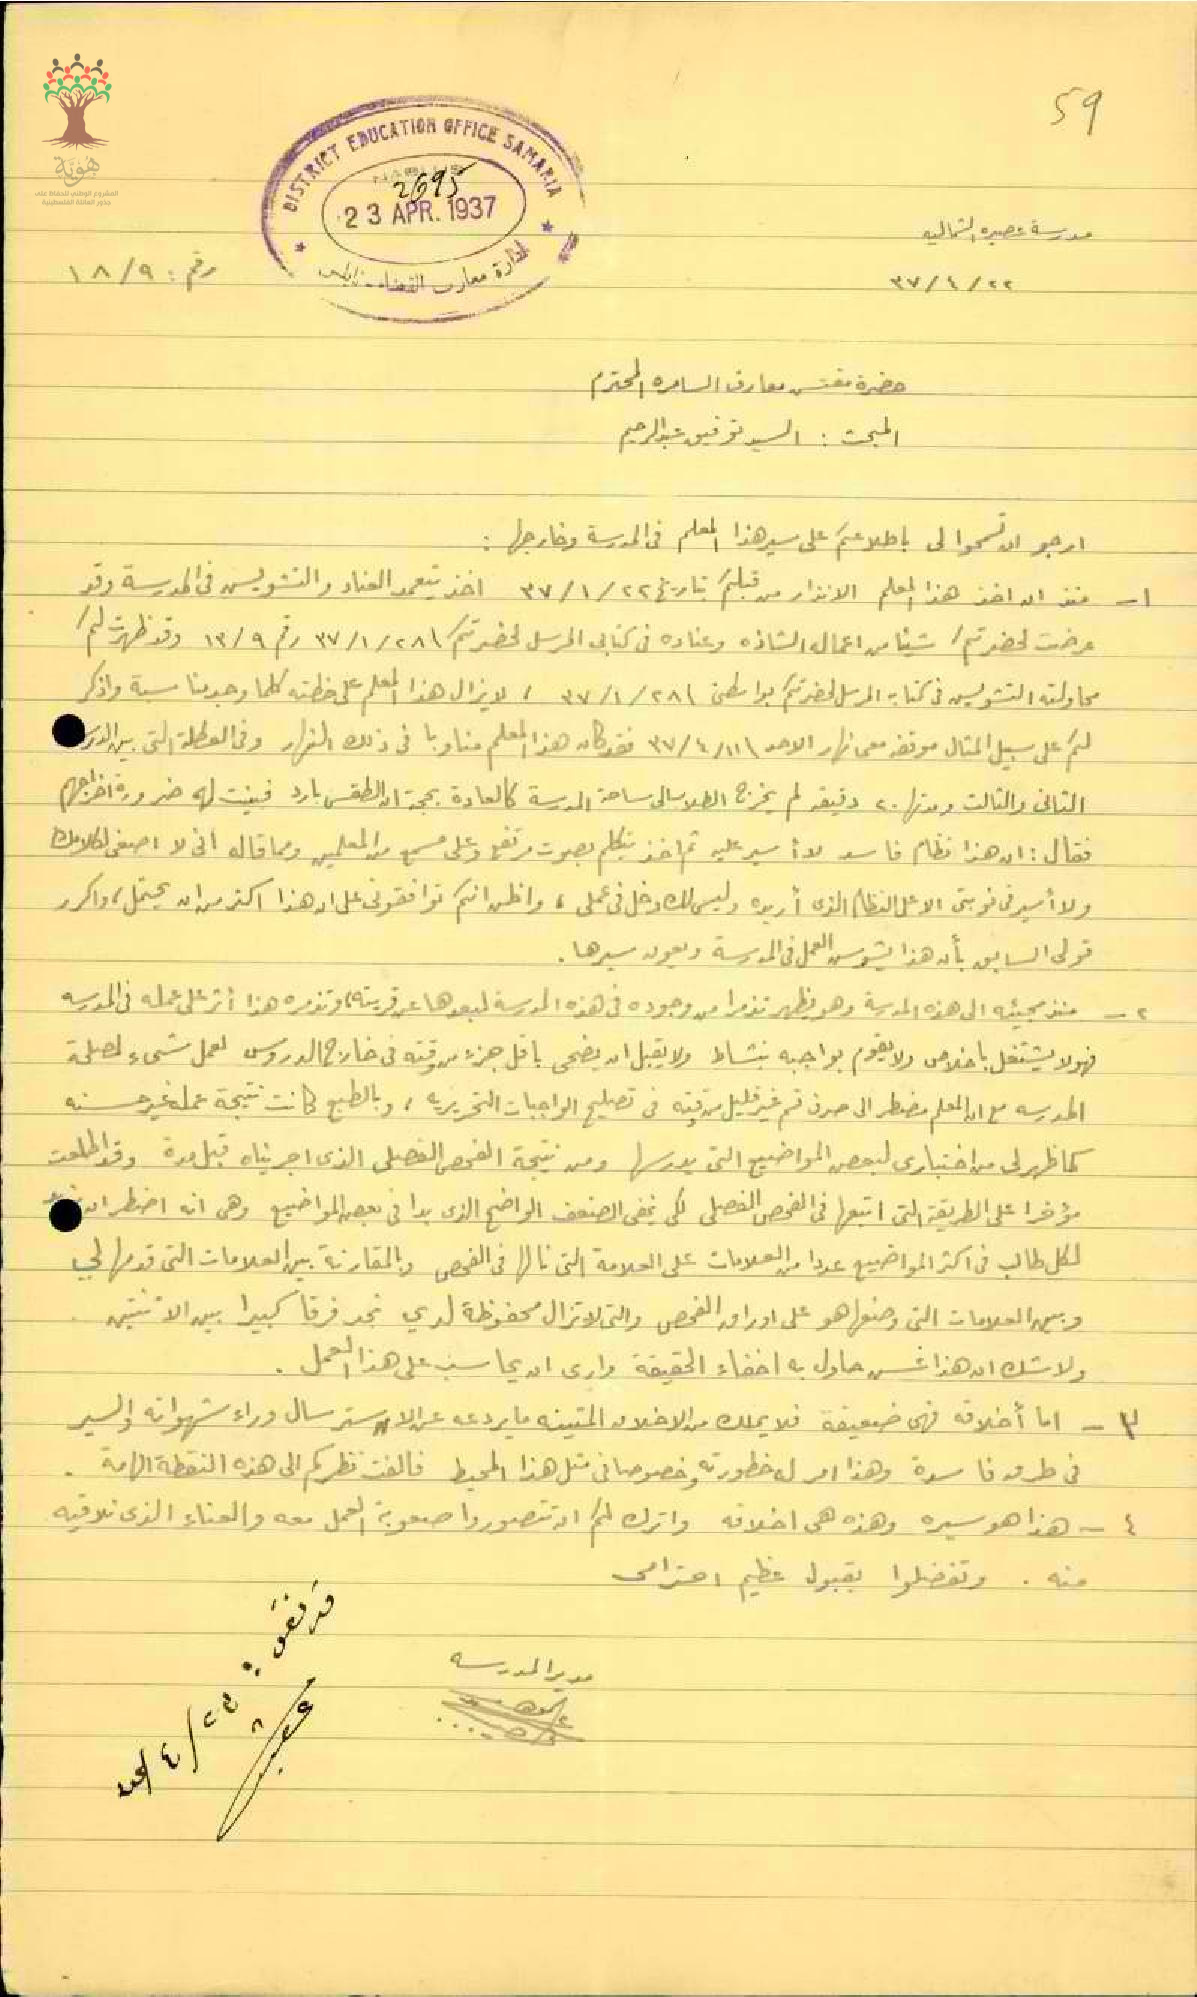 59
هوية
المشروع الوطني للحفاظ على
جذور العائلة الفلسطينية
DISTRICT EDUCATION OFFICE SAMARIA
NABLUS
2695
23 APR. 1937
ادارة معارف القضاء - نابلس
مدرسة عصيره الشماليه
٣٧/٤/٢٢
رقم : ١٨/٩
حضرة مفتش معارف السامره المحترم
المبحث : السيد توفيق عبدالرحيم
ارجو ان تسمحوا لي باطلاعكم على سير هذا المعلم في المدرسة وخارجها :
١ - منذ ان اخذ هذا المعلم الانذار من قبلكم بتاريخ ٣٧/١/٢٢ اخذ يتعمد العناد والتشويش في المدرسة وقد
عرضت لحضرتكم شيئا من اعماله الشاذه وعناده في كتابي المرسل لحضرتكم ٣٧/١/٢٨ رقم ١٣/٩ وقد ظهرت لكم
محاولته التشويش في كتابه المرسل لحضرتكم بواسطتي ٣٧/١/٢٨ ، لا يزال هذا المعلم على خطته كلما وجد مناسبة واذكر
لكم على سبيل المثال موقفه معي نهار الاحد ٣٧/٤/١١ فقد كان هذا المعلم مناوبا في ذلك النهار وفي العطلة التي بين الدرس
الثاني والثالث ومدتها ٢٠ دقيقه لم يخرج الطلاب الى ساحة المدرسة كالعادة بحجة ان الطقس بارد فبينت له ضرورة اخراجهم
فقال : ان هذا نظام فاسد لا أسير عليه ثم اخذ يتكلم بصوت مرتفع وعلى مسمع من المعلمين ومما قاله اني لا اصغي لكلامك
ولا أسير في نوبتي الا على النظام الذي أريده وليس لك دخل في عملي ، واظن انكم توافقوني على ان هذا اكثر من ان يحتمل ، واكرر
قولي السابق بأن هذا يشوس العمل في المدرسة ويعوق سيرها .
٢ - منذ مجيئه الى هذه المدرسة وهو يظهر تذمرا من وجوده في هذه المدرسة لبعدها عن قريته ، وتذمره هذا أثر على عمله في المدرسه
فهو لا يشتغل باخلاص ولا يقوم بواجبه بنشاط ولا يقبل ان يضحي باقل جزء من وقته في خارج الدروس لعمل شيء لمصلحة
المدرسه مع ان المعلم مضطر الى صرف قسم غير قليل من وقته في تصليح الواجبات التحريريه ، وبالطبع كانت نتيجة عمله غير حسنه
كما ظهر لي من اختباري لبعض المواضيع التي يدرسها ومن نتيجة الفحص الفصلي الذي اجريناه قبل مدة وقد اطلعت
مؤخرا على الطريقة التي اتبعها في الفحص الفصلي لكي يخفي الضعف الواضح الذي بدا في بعض المواضيع وهي انه اضطر ان
لكل طالب في اكثر المواضيع عددا من العلامات على العلامة التي نالها في الفحص وبالمقارنة بين العلامات التي قدمها لي
وبين العلامات التي وضعها هو على اوراق الفحص والتي لا تزال محفوظة لدي نجد فرقا كبيرا بين الاثنتين .
ولا شك ان هذا غش حاول به اخفاء الحقيقة وارى ان يحاسب على هذا العمل .
٣ - اما أخلاقه فهي ضعيفة فلا يملك من الاخلاق المتينه ما يردعه عن الاسترسال وراء شهواته والسير
في طرق فاسدة وهذا امر له خطورته وخصوصا في مثل هذا المحيط فالفت نظركم الى هذه النقطة الهامة .
٤ - هذا هو سيره وهذه هي اخلاقه واترك لكم ان تتصوروا صعوبة العمل معه والعناء الذي نلاقيه
منه . وتفضلوا بقبول عظيم احترامي
مدير المدرسه